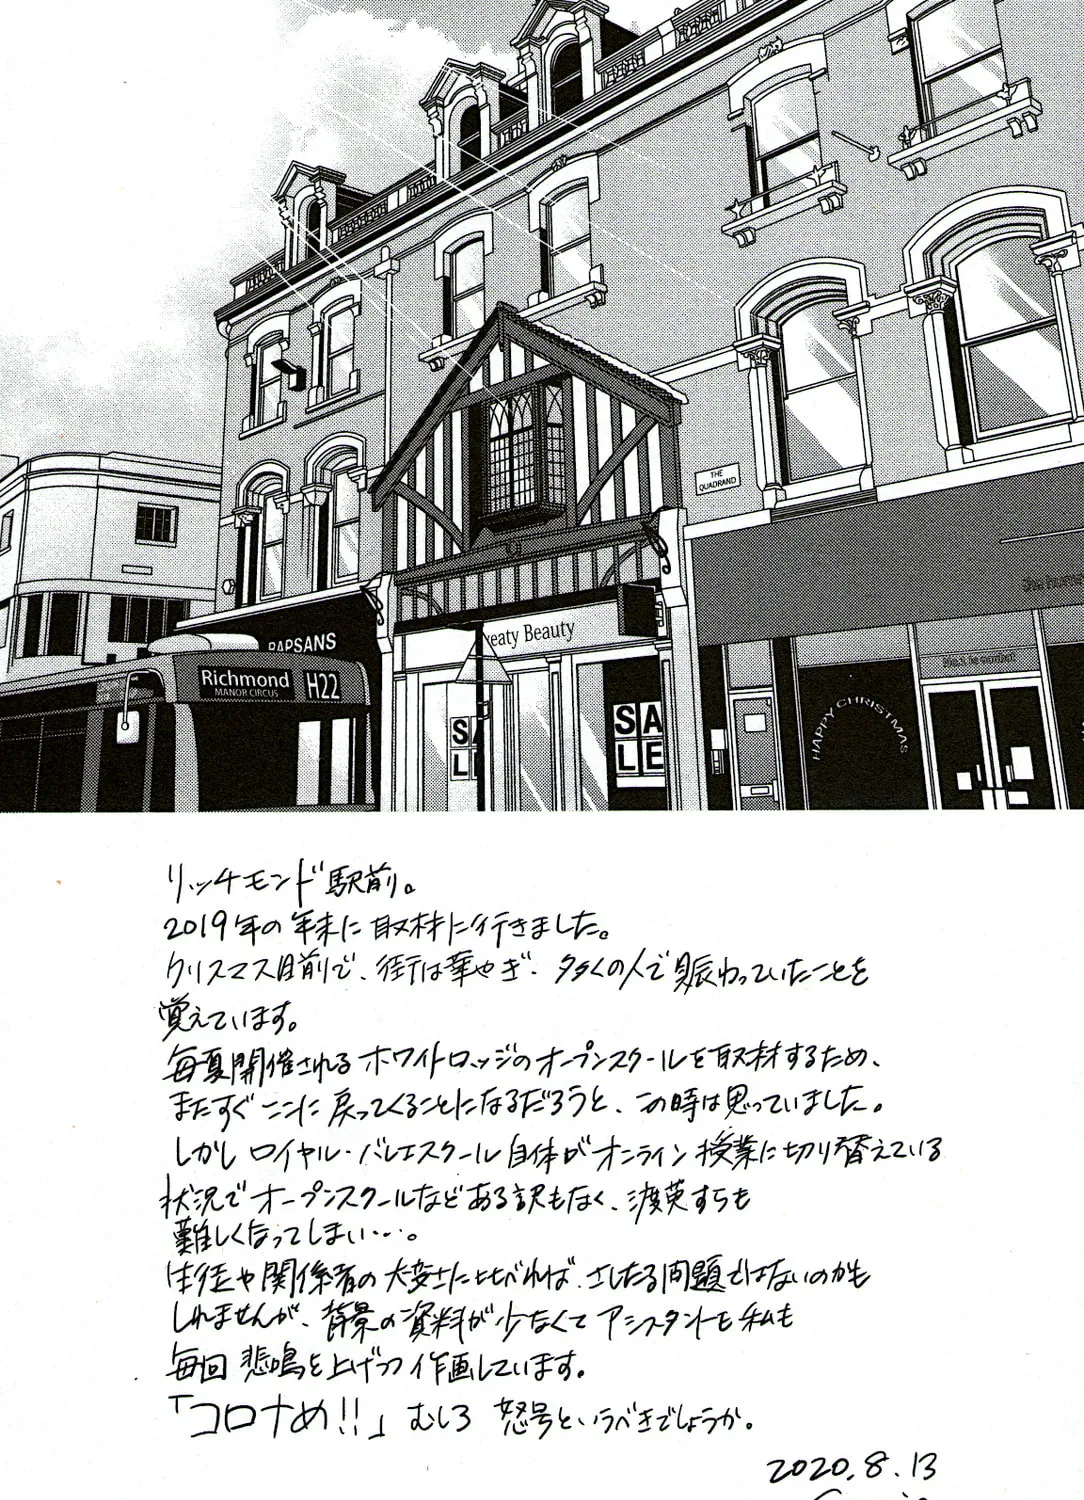 THE
QUADRAND
PAPSANS
eaty Beauty
Richmond
MANOR CIRCUS
H22
SA
LE
SA
LE
HAPPY CHRISTMAS
リッチモンド駅前。
2019年の年末に取材に行きました。
クリスマス目前で、街は華やぎ、多くの人で賑わっていたことを
覚えています。
毎夏開催されるホワイトロッジのオープンスクールを取材するため、
またすぐここに戻ってくることになるだろうと、この時は思っていました。
しかしロイヤル・バレエスクール自体がオンライン授業に切り替えている
状況でオープンスクールなどある訳もなく、渡英すらも
難しくなってしまい…。
生徒や関係者の大変さに比べれば、さしたる問題ではないのかも
しれませんが、背景の資料が少なくてアシスタントも私も
毎回悲鳴を上げつつ作画しています。
「コロナめ!!」むしろ 怒号というべきでしょうか。
2020.8.13